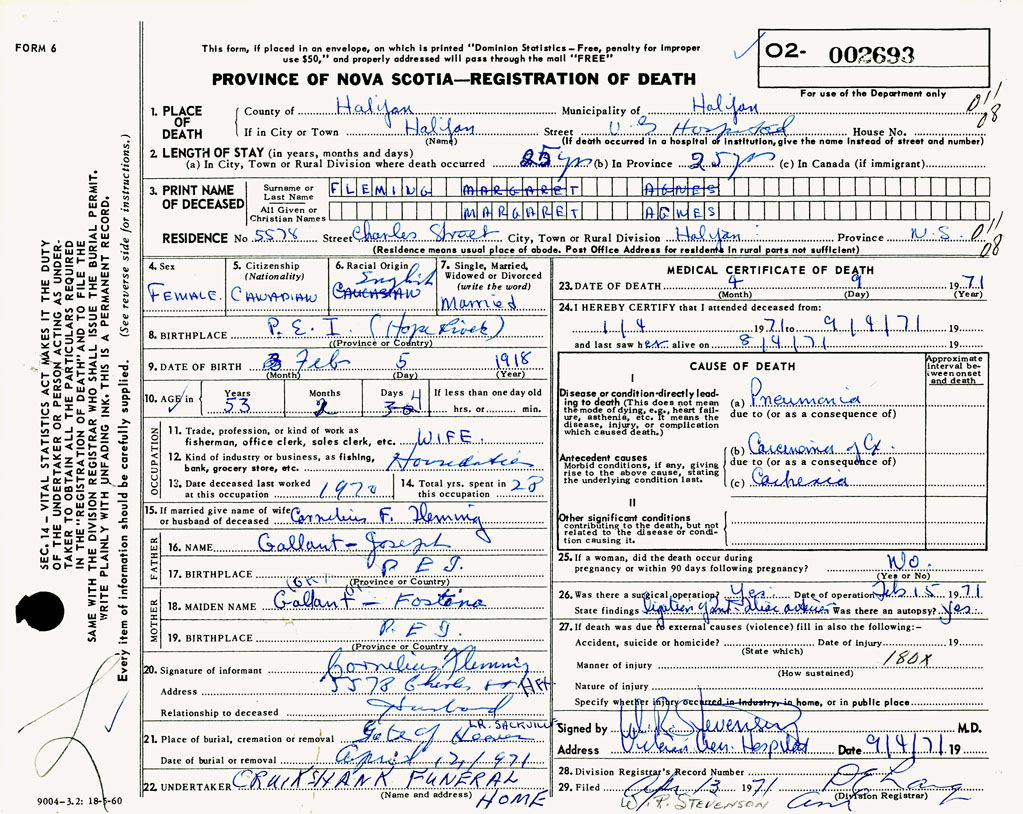 FORM 6
This form, if placed in an envelope, on which is printed "Dominion Statistics – Free, penalty for improper
use $50," and properly addressed will pass through the mail "FREE"
O2- 002693
For use of the Department only
PROVINCE OF NOVA SCOTIA—REGISTRATION OF DEATH
SEC. 14 – VITAL STATISTICS ACT MAKES IT THE DUTY
OF THE UNDERTAKER OR PERSON ACTING AS UNDER-
TAKER TO OBTAIN ALL THE PARTICULARS REQUIRED
IN THE "REGISTRATION OF DEATH" AND TO FILE THE
SAME WITH THE DIVISION REGISTRAR WHO SHALL ISSUE THE BURIAL PERMIT.
WRITE PLAINLY WITH UNFADING INK. THIS IS A PERMANENT RECORD.
Every item of information should be carefully supplied. (See reverse side for instructions.)
1. PLACE OF DEATH County of Halifax Municipality of Halifax
If in City or Town Halifax Street V G Hospital House No.
(Name) (If death occurred in a hospital or institution, give the name instead of street and number)
2. LENGTH OF STAY (in years, months and days)
(a) In City, Town or Rural Division where death occurred 25 yrs (b) In Province 25 yrs (c) In Canada (if immigrant)
3. PRINT NAME OF DECEASED Surname or Last Name FLEMING MARGARET AGNES
All Given or Christian Names MARGARET AGNES
RESIDENCE No 5578 Street Charles Street City, Town or Rural Division Halifax Province N.S.
(Residence means usual place of abode. Post Office Address for residents in rural parts not sufficient)
D11
08
D11
08
4. Sex FEMALE.
5. Citizenship (Nationality) CANADIAN
6. Racial Origin English CAUCASIAN
7. Single, Married, Widowed or Divorced (write the word) Married
8. BIRTHPLACE P.E.I (Hope River)
(Province or Country)
9. DATE OF BIRTH Feb 5 1918
(Month) (Day) (Year)
10. AGE in Years 53 Months 2 Days 4 If less than one day old hrs. or min.
OCCUPATION
11. Trade, profession, or kind of work as fisherman, office clerk, sales clerk, etc. WIFE.
12. Kind of industry or business, as fishing, bank, grocery store, etc. Housduties
13. Date deceased last worked at this occupation 1970 14. Total yrs. spent in this occupation 28
15. If married give name of wife or husband of deceased Cornelius F. Fleming
FATHER
16. NAME Gallant - Joseph
17. BIRTHPLACE P E I.
(Province or Country)
MOTHER
18. MAIDEN NAME Gallant -
19. BIRTHPLACE P E I.
(Province or Country
20. Signature of informant Cornelius Fleming
Address 5578 Charles st Hfx
Relationship to deceased Husband
21. Place of burial, cremation or removal Gate of Heaven LR. SACKVILLE
Date of burial or removal April 12/1971
22. UNDERTAKER CRUIKSHANK FUNERAL HOME
(Name and address)
9004-3.2: 18-5-60
MEDICAL CERTIFICATE OF DEATH
23. DATE OF DEATH 4 9 1971
(Month) (Day) (Year)
24. I HEREBY CERTIFY that I attended deceased from:
1/4 1971 to 9/4/71 19
and last saw her alive on 8/4/71 19
CAUSE OF DEATH
Approximate interval between onset and death
I
Disease or condition directly leading to death (This does not mean the mode of dying, e.g., heart failure, asthenia, etc. It means the disease, injury, or complication which caused death.)
(a) Pneumonia
due to (or as a consequence of)
Antecedent causes
Morbid conditions, if any, giving rise to the above cause, stating the underlying condition last.
(b) Carcinoma of Cx.
due to (or as a consequence of)
(c) Cachexia
II
Other significant conditions
contributing to the death, but not related to the disease or condition causing it.
25. If a woman, did the death occur during
pregnancy or within 90 days following pregnancy? No.
(Yes or No)
26. Was there a surgical operation? Yes Date of operation Feb 15 1971
State findings ligation of int iliac arteries Was there an autopsy? Yes.
27. If death was due to external causes (violence) fill in also the following:-
Accident, suicide or homicide? Date of injury 19
(State which)
180X
Manner of injury
(How sustained)
Nature of injury
Specify whether injury occurred in industry, in home, or in public place
Signed by W.R. Stevenson M.D.
Address Victoria Gen. Hospital Date 9/4/71 19
28. Division Registrar's Record Number
29. Filed Apr 13 1971
(Division Registrar)
W.R. STEVENSON